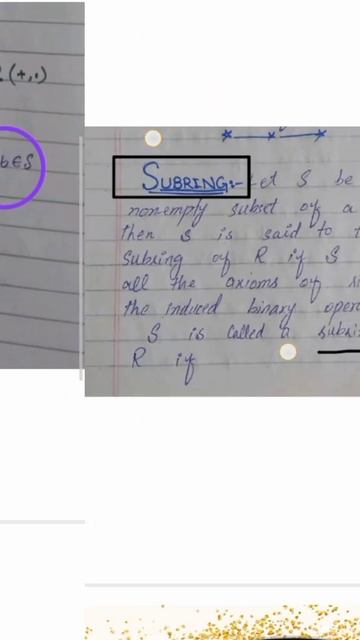 (+,.)
b∈S
SUBRING:- Let S be
nonempty subset of a
then S is said to
Subring of R if S
all the axioms of
the induced binary opera
S is called a subri
R if